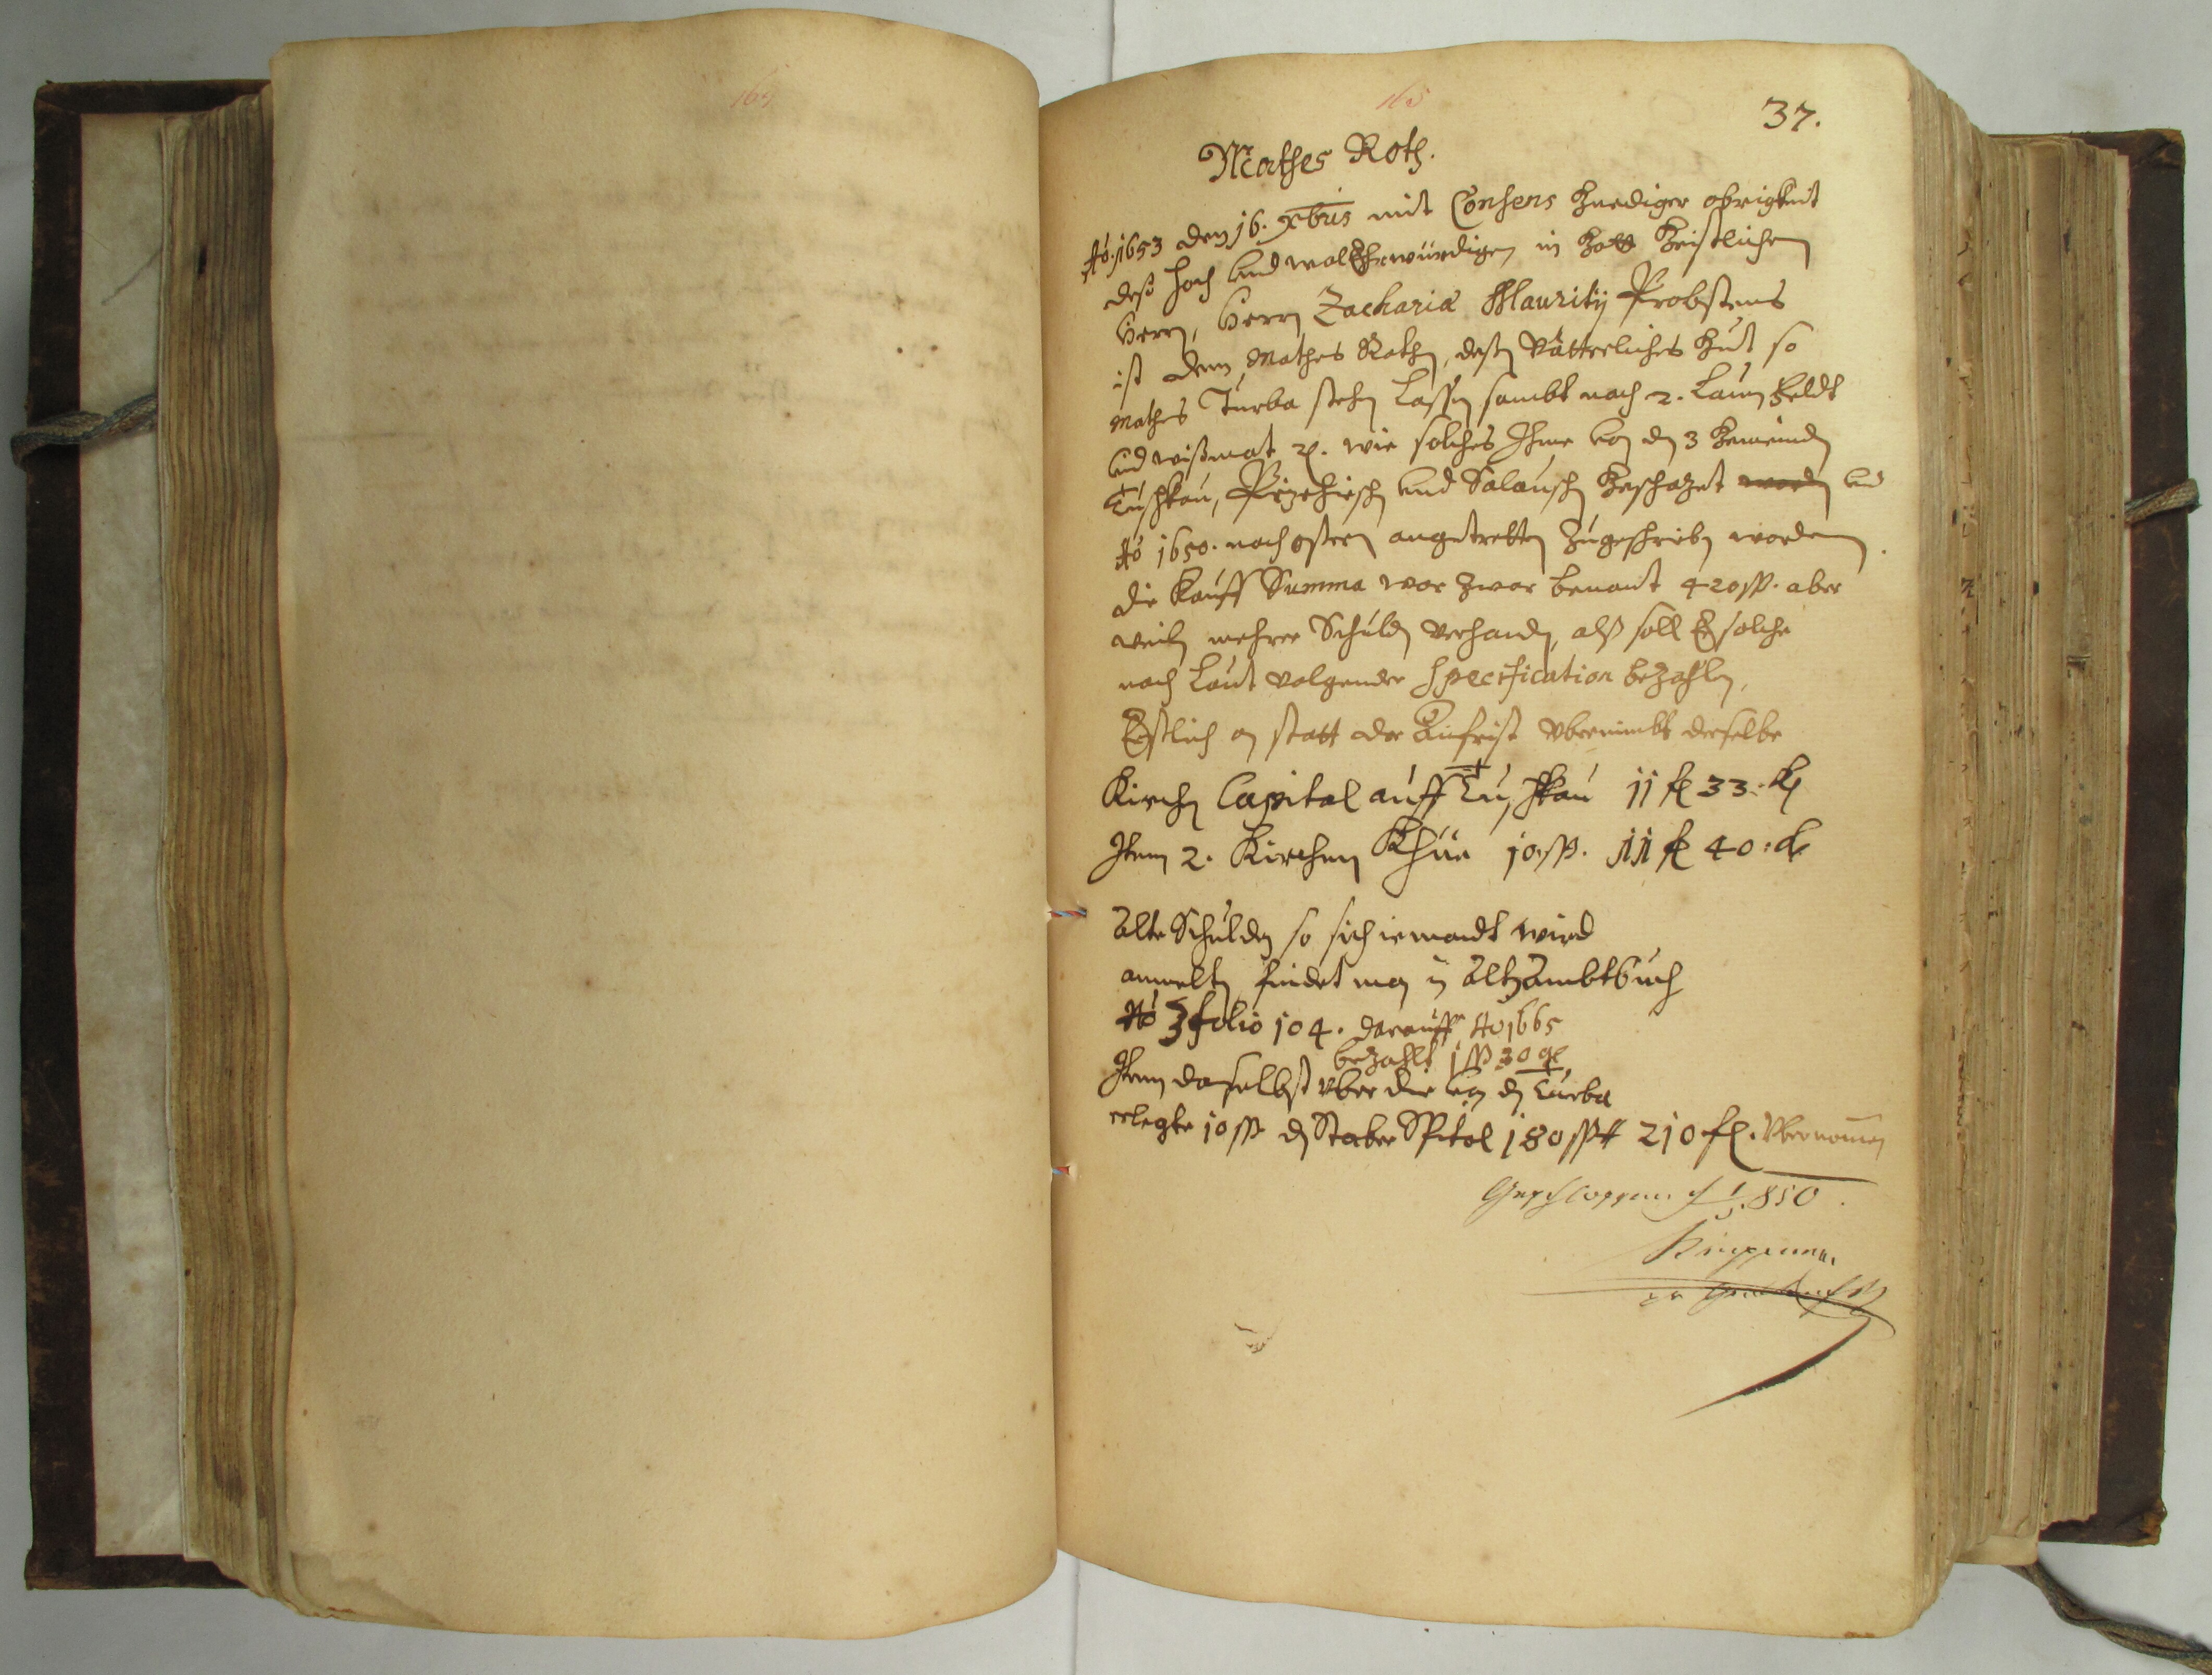 164
165
37.
Mathes Roth.
Aō. 1653 den 16. xbris mit Consens Gnediger obrigkeit
deß Hoch und wol Ehrwürdigen in Gott Geistlichen
Herrn, Herrn Zachariæ Mauritij Probstens
ist dem Mathes Rothn, deßen Vätterliches Gut so
Mathes Turba stehn Lassen sambt nach 2. Laimfeldt
und wißmat ꝛc. wie solches Ihme von den 3 Gemeinden
Tuschkau, Przehisch und Salausch Geschazet worden und
Aō 1650. nach ostern angetretten Zugeschrieben worden.
die Kauff Summa war zwar benant 420 ßß. aber
weiln mehrer Schulden verhanden, alß soll Er solche
nach Laut volgender Specification bezahlen,
Erstlich an statt der Anfrist vbernimbt derselbe
Kirchen Capital auff Tuschkau 11 fl 33: kr
Item 2. Kirchen Khüe 10 ßß. 11 fl 40: kr
Alte Schulden so sich iemandt wird
anmelten findet man in Alten Ambtbuch
Aō 3 folio 104. darauff Aō 1665
bezahlt 1 ßß 30 gl
Item daselbst vber die von den Turba
erlegte 10 ßß den Staber Spital 180 ßß 210 fl. Vbernomen
Geschlossen 850.